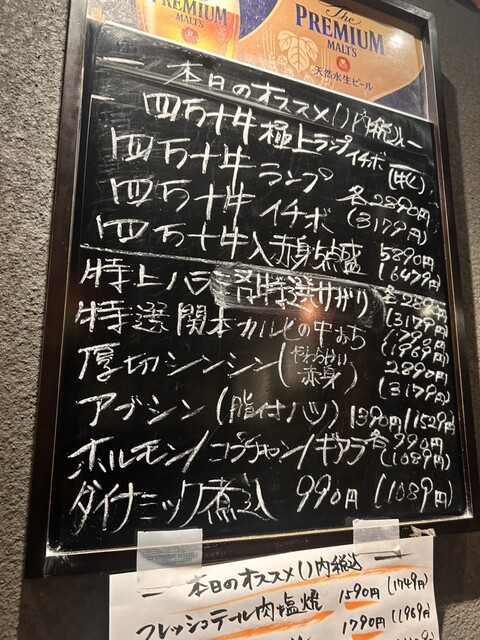 PREMIUM
MALT'S
The
PREMIUM
MALT'S
天然水生ビール
ー本日のオススメ()内税込ー
四万十牛極上ランプイチボ
四万十牛ランプ
四万十牛イチボ 各2890円(3179円)
四万十牛入赤身5点盛 5890円(6479円)
特上ハラミ 特選サガリ 各2890円(3179円)
特選関本カルビの中おち 1790円(1969円)
厚切シンシン(やわらかい赤身) 2890円(3179円)
アブシン(脂付ハツ) 1390円(1529円)
ホルモン/コプチャン/ギアラ 各990円(1089円)
ダイナミック煮込 990円(1089円)
ー本日のオススメ()内税込ー
フレッシュテール肉塩焼 1590円(1749円)
1790円(1969円)